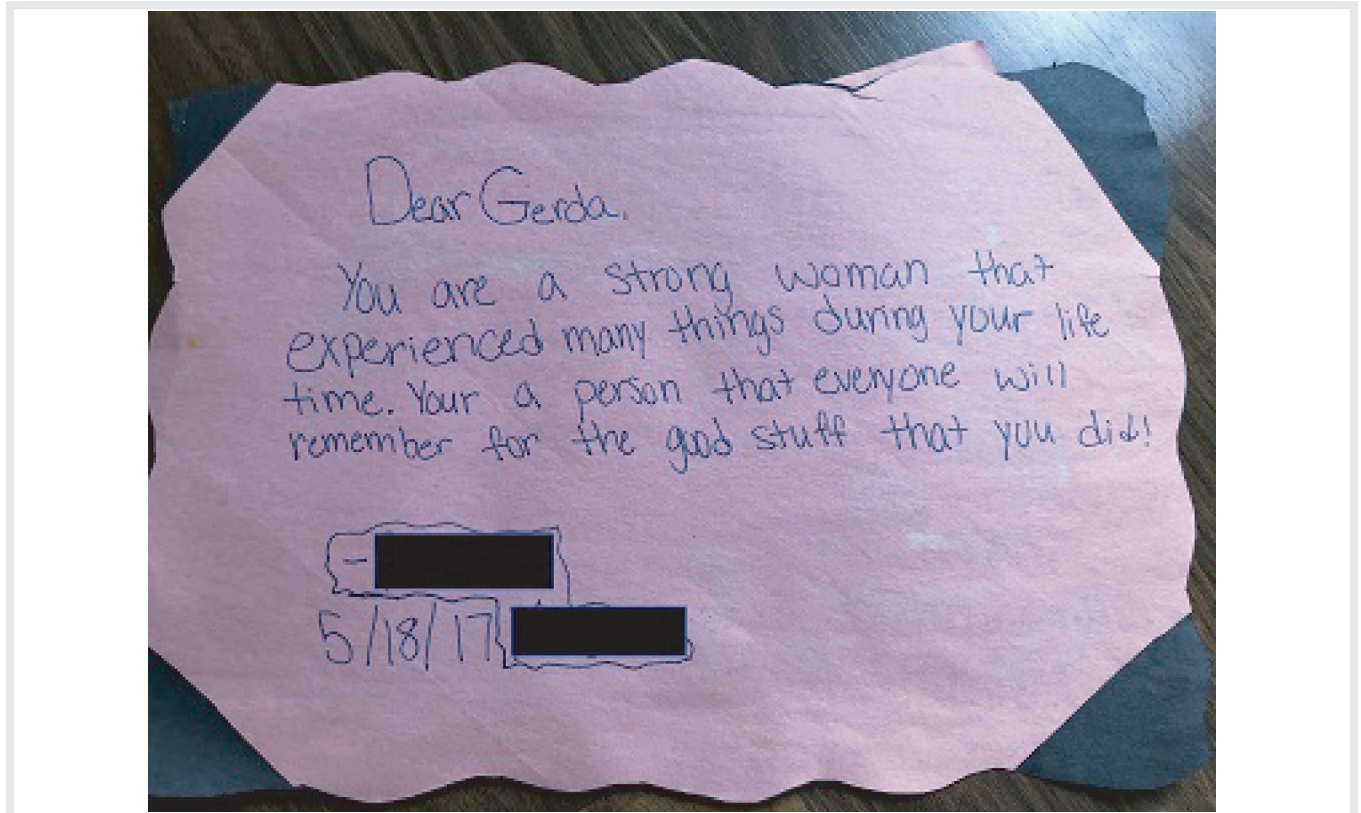 Dear Gerda,
You are a strong woman that
experienced many things during your life
time. Your a person that everyone will
remember for the good stuff that you did!
-
5/18/17